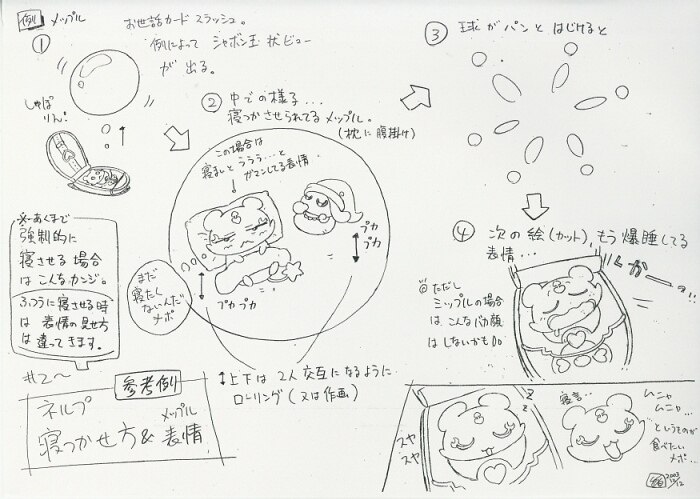 例 メップル
①
お世話カードスラッシュ。
例によって シャボン玉状ビュー
が出る。
しゃぼ
りん!
② 中での様子…
寝つかさせられてるメップル。
(枕に腹掛け)
この場合は
寝まいと ううう…と
ガマンしてる表情。
プカ
プカ
プカプカ
まだ
寝たく
ないんだ
メポ
③ 球がパンとはじけると
④ 次の絵(カット)、もう爆睡してる
表情…
くかーッ!!
◎ただし
ミップルの場合
は、こんなバカ顔
はしないかも。
※あくまで
強制的に
寝させる場合
はこんなカンジ。
ふつうに寝させる時
は表情の見せ方
は違ってきます。
↕上下は2人交互になるように
ローリング(又は作画)
#2〜
参考例
ネルプ
寝つかせ方& メップル表情
スヤ
スヤ
z
z
寝言…
ムニャ
ムニャ…
というものが
食べたい
メポ…
2003
12/12